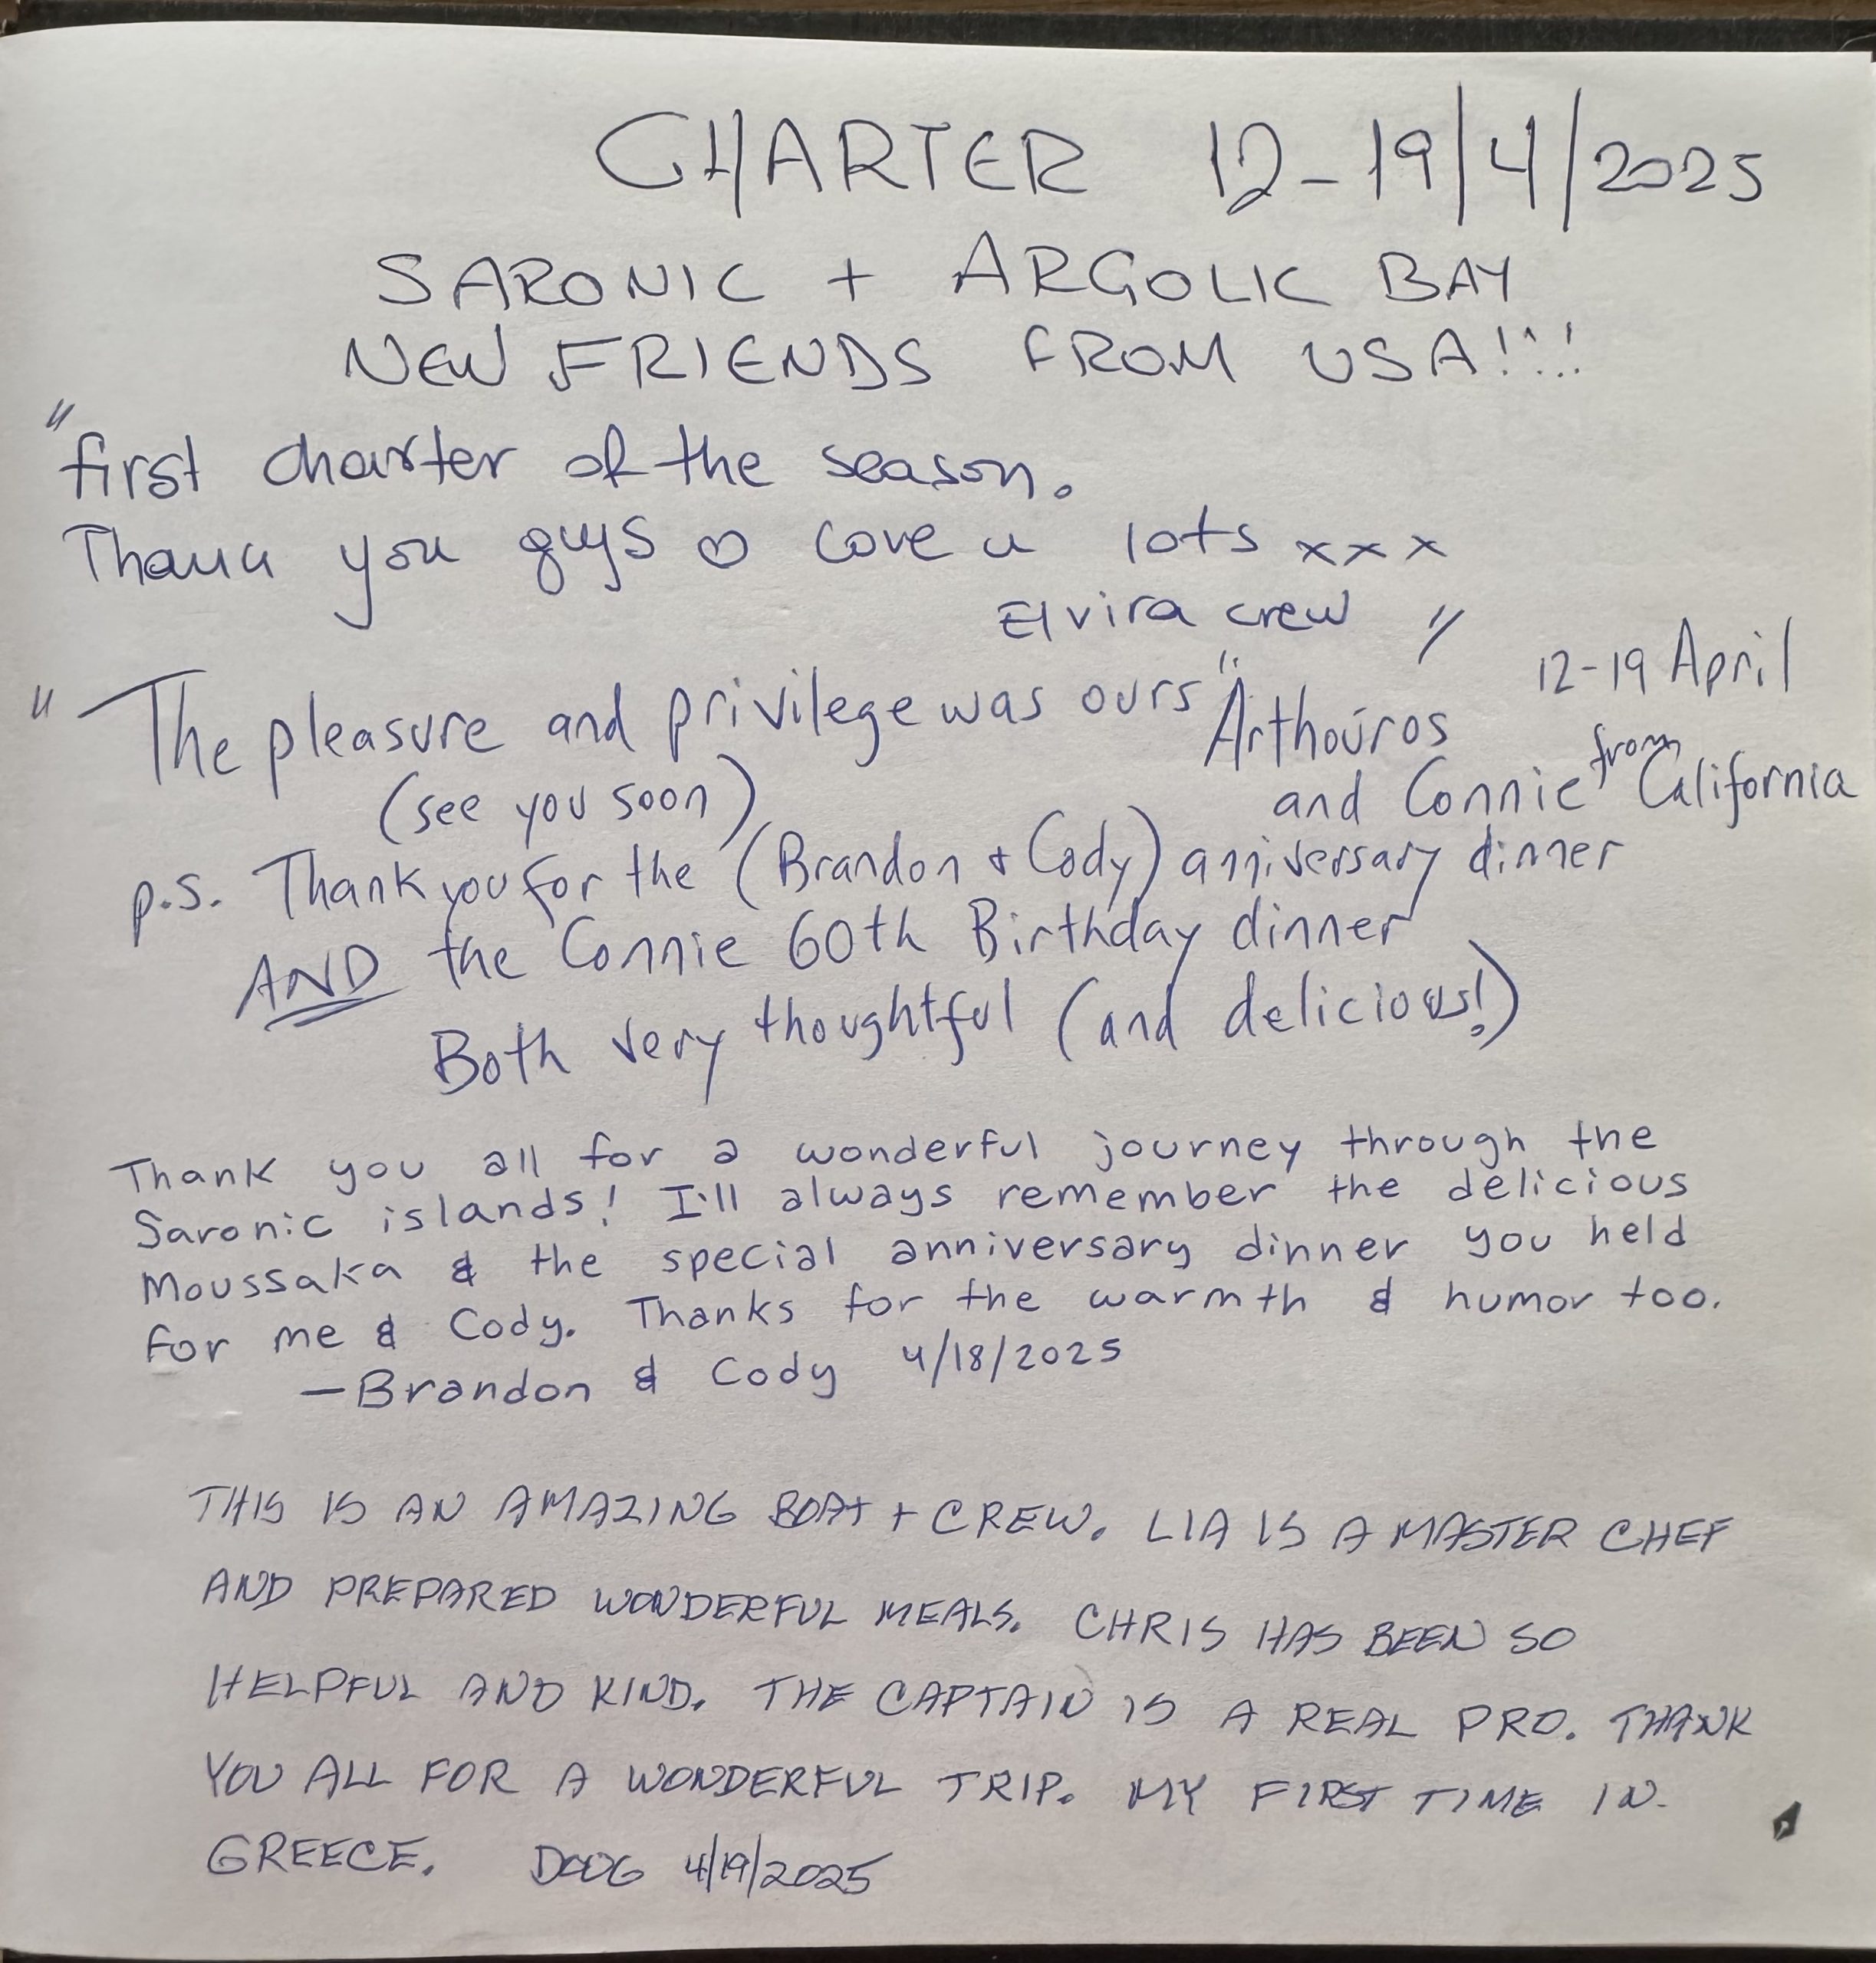 CHARTER 12-19/4/2025
SARONIC + ARGOLIC BAY
NEW FRIENDS FROM USA!!!!
"first charter of the season.
Thank you guys ♡ Love u lots xxx
Elvira crew "
"The pleasure and privilege was ours" Arthoúros 12-19 April
(see you soon) and Connie from California
p.s. Thank you for the (Brandon + Cody) anniversary dinner
AND the Connie 60th Birthday dinner
Both very thoughtful (and delicious!)
Thank you all for a wonderful journey through the
Saronic islands! I'll always remember the delicious
Moussaka & the special anniversary dinner you held
for me & Cody. Thanks for the warmth & humor too.
—Brandon & Cody 4/18/2025
THIS IS AN AMAZING BOAT + CREW. LIA IS A MASTER CHEF
AND PREPARED WONDERFUL MEALS. CHRIS HAS BEEN SO
HELPFUL AND KIND. THE CAPTAIN IS A REAL PRO. THANK
YOU ALL FOR A WONDERFUL TRIP. MY FIRST TIME IN
GREECE. DOUG 4/19/2025